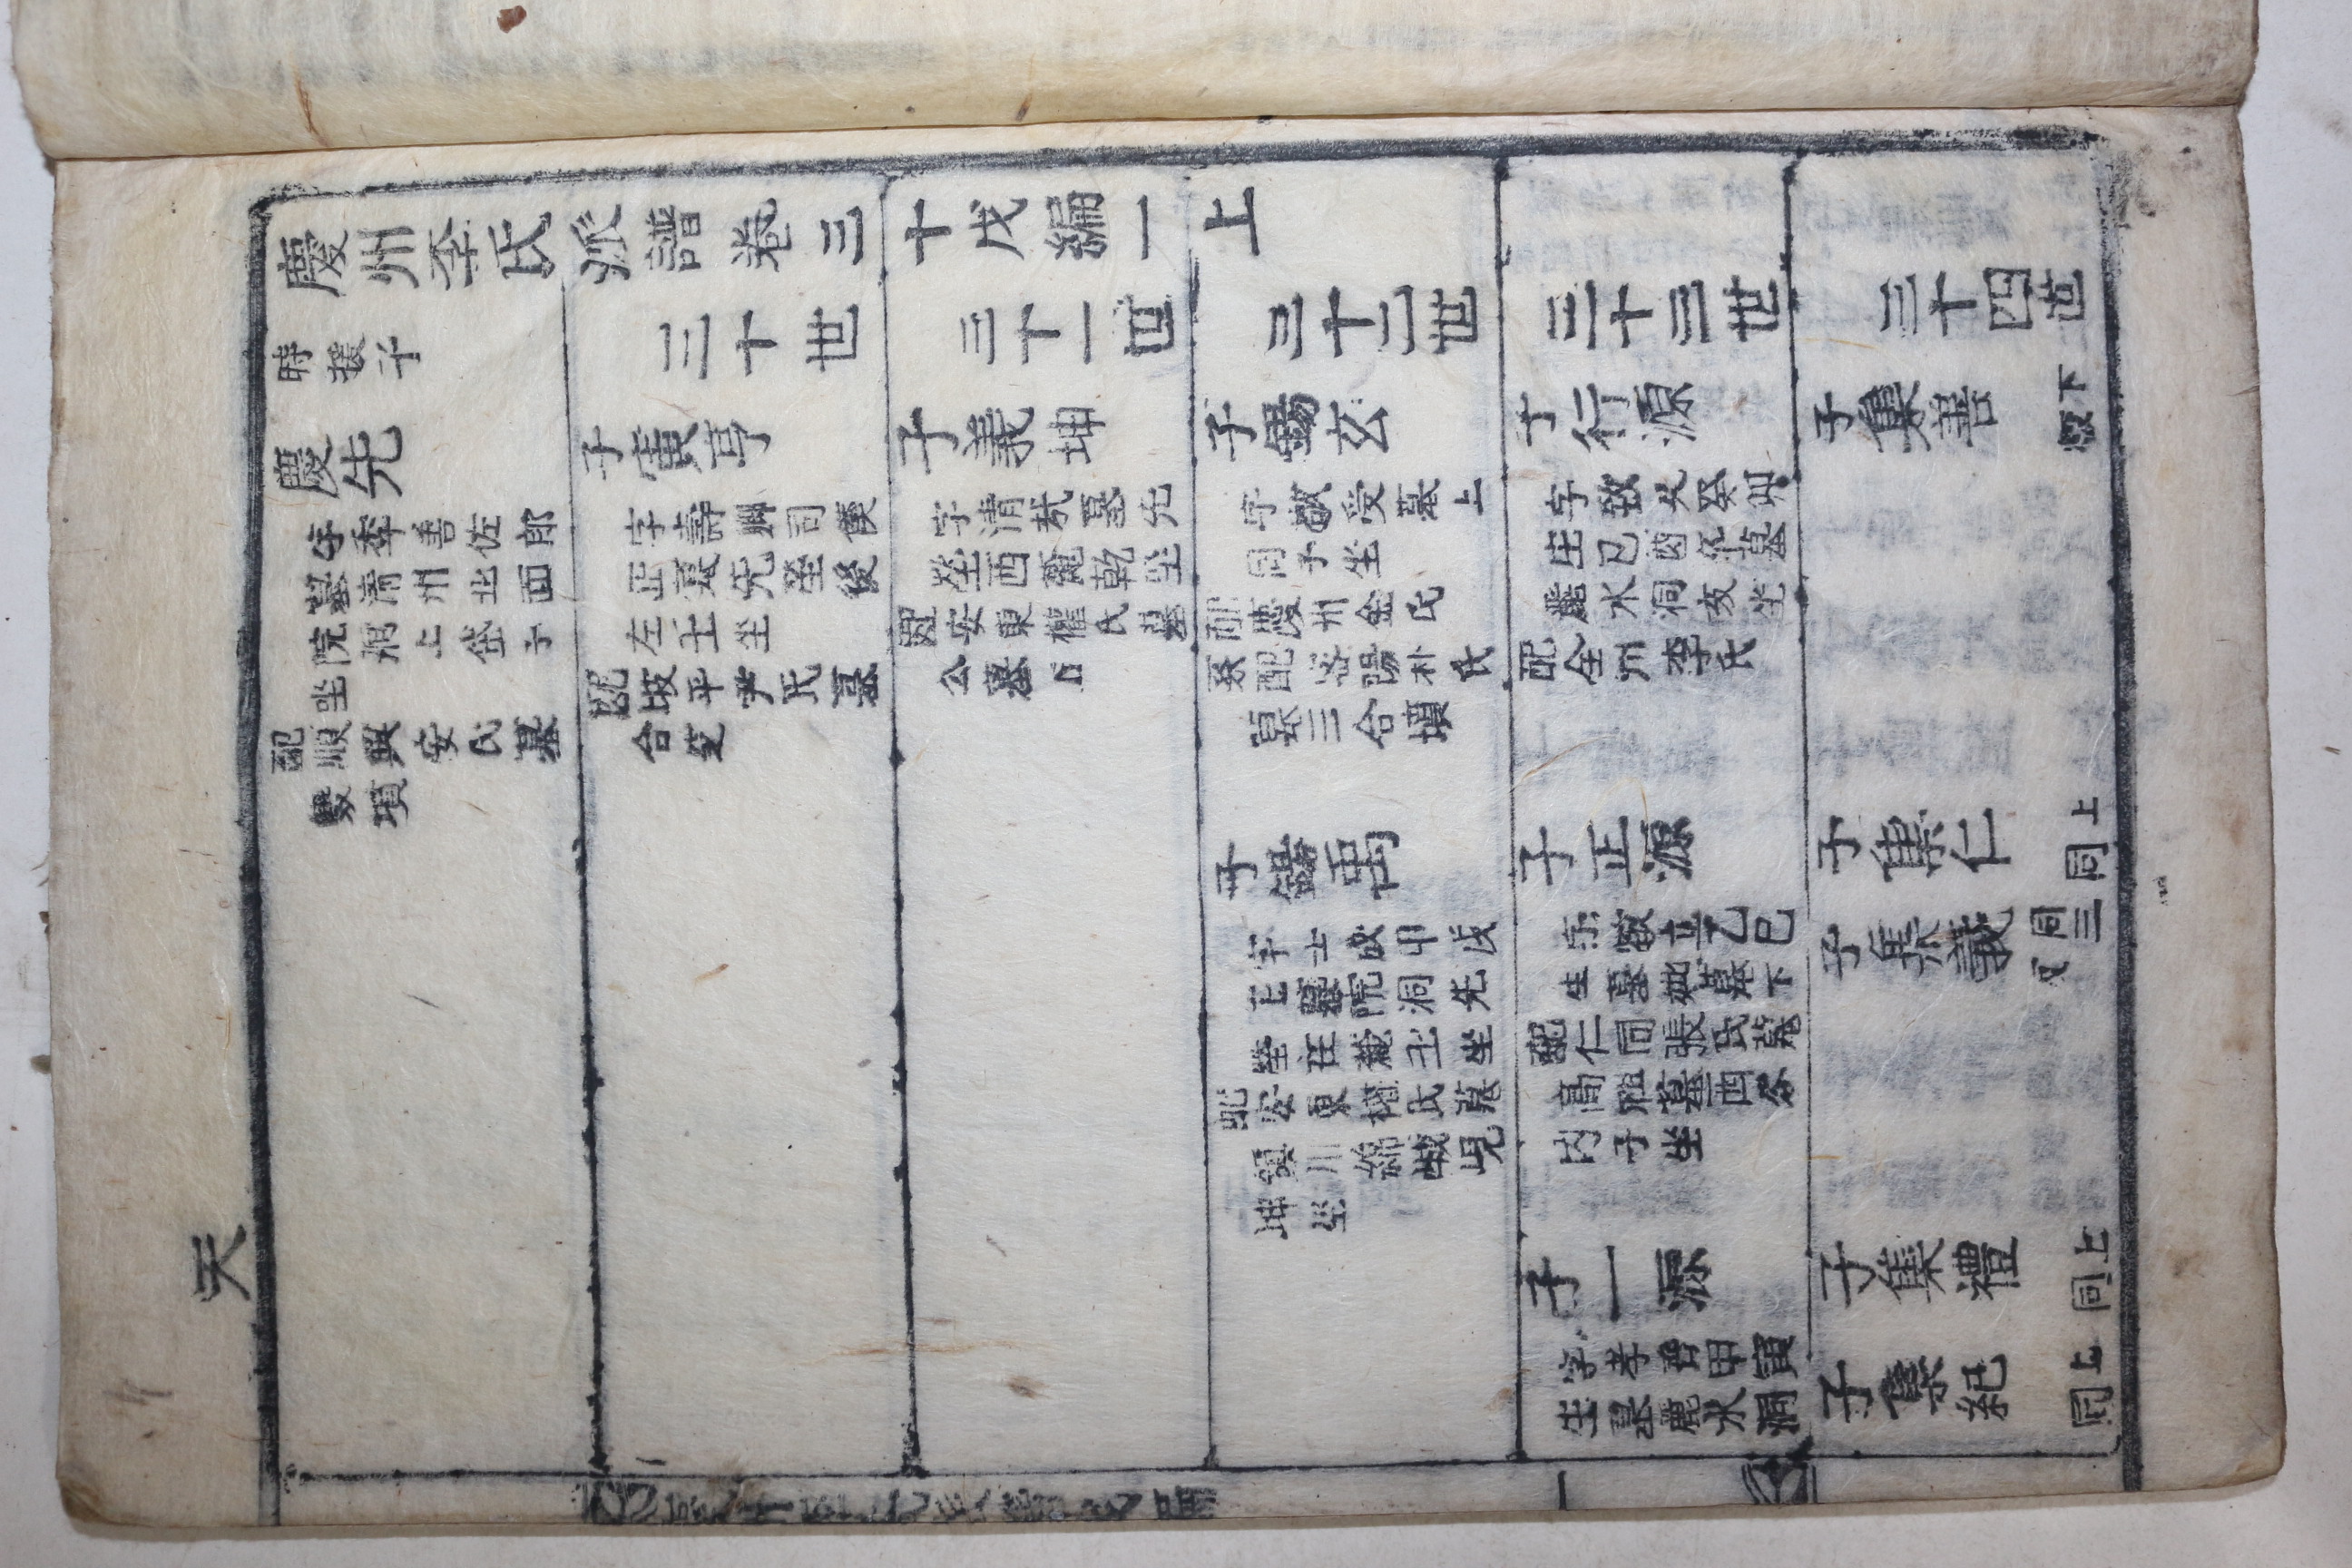 天
慶州李氏派譜卷三十戊編一上
時援子
三十世
三十一世
三十二世
三十三世
三十四世
慶先
字季善佐郎
墓清州北面
院洞上岱子
坐
配順興安氏墓
雙墳
子寅亨
字壽卿司僕
正墓先塋後
左壬坐
配坡平尹氏墓
合窆
子義坤
字清哉墓先
塋西麓乾坐
配安東權氏墓
公墓下
子錫玄
字敬受墓上
同子坐
配慶州金氏
系配密陽朴氏
墓三合墳
子錫禹
字士成甲戌
生墓院洞先
塋左麓壬坐
配安東權氏墓
鎮川綿城峴
坤坐
子行源
字致久癸卯
生己酉卒墓
麗水洞亥坐
配全州李氏
子正源
字敬立乙巳
生墓妣墓下
配仁同張氏墓
高祖墓西谷
丙子坐
子一源
字孝晋甲寅
生墓麗水洞
子集善
下
子集仁
上同
子集義
同三
子集禮
上同
子集紀
上同
一